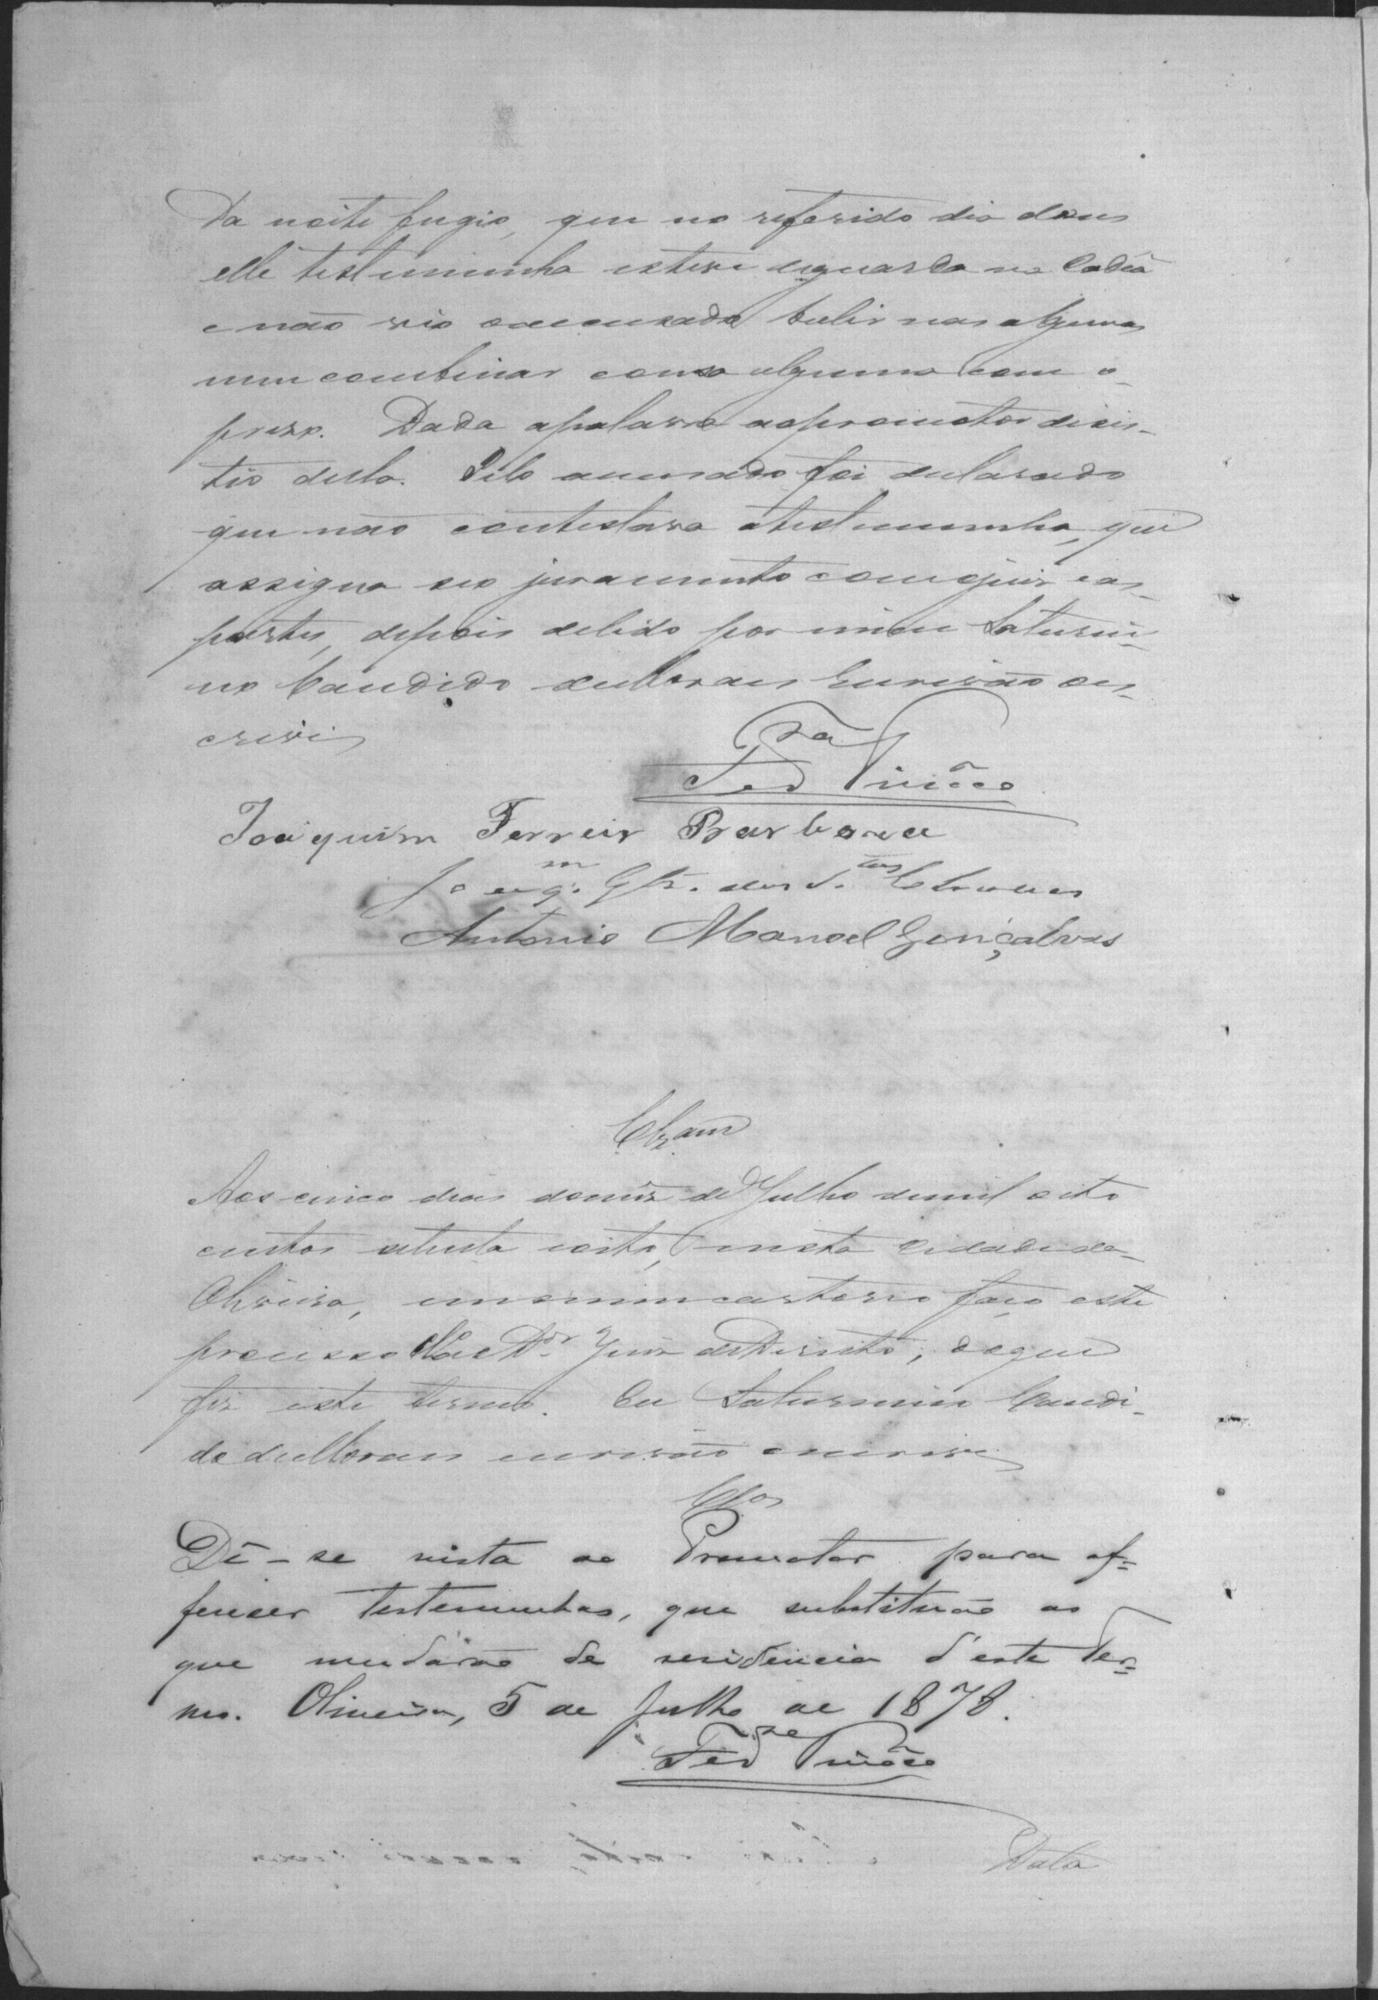 da noite fugio, que no referido dia dous
elle testemunha esteve deguarda na Cadêa
e não vio oaccusado bulir nas algemas
nem combinar cousa alguma com o
prezo. Dada apalavra aopromotor dezis-
tio della. Pelo accusado foi declarado
que não contestava atestemunha, que
assigna seo juramento com ojuiz e as
partes, depois delido por mim Saturni-
no Candido deMoraes Escrivão oes-
crevi
Joaquim Ferreir Barboza
Joaq.m dos S.tos Chaves
Antonio Manoel Gonçalves
Clzam
Aos cinco dias domez de Julho demil oito
centos setenta eoito, nesta Cidade de
Oliveira, em omeu cartorio faço este
processo Cls ao Dr. Juiz deDireito, doque
fiz este termo. Eu Saturnino Candi-
do deMoraes escrivão oescrevi
Clos
Dê-se vista ao Promotor para of-
ferecer testemunhas, que substituão as
que mudárão de residencia d'este Ter-
mo. Oliveira, 5 de Julho de 1878.
Data